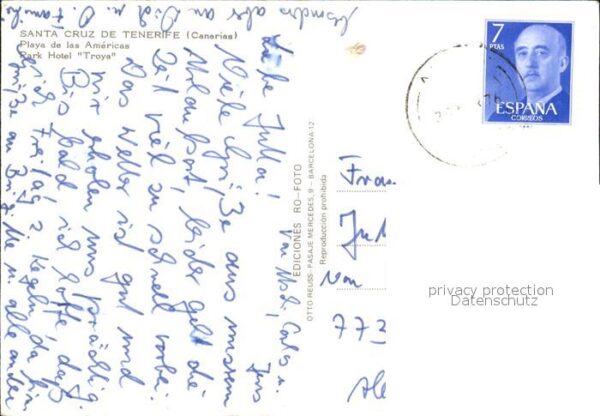 SANTA CRUZ DE TENERIFE (Canarias)
Playa de las Américas
Park Hotel "Troya"
Liebe Jutta!
Viele Grüße aus unserem
Urlaubsort, leider geht die
Zeit viel zu schnell vorbei.
Das Wetter ist gut und
wir erholen uns prächtig.
Bis bald ich hoffe daß
Freitag z. Kegeln da bin
Grüße an Brigitte u. alle anderen
EDICIONES RO-FOTO
OTTO REUSS-PASAJE MERCEDES, 9 - BARCELONA-12
Reproducción prohibida
7
PTAS
ESPAÑA
CORREOS
Frau
Jut
von
773
privacy protection
Datenschutz